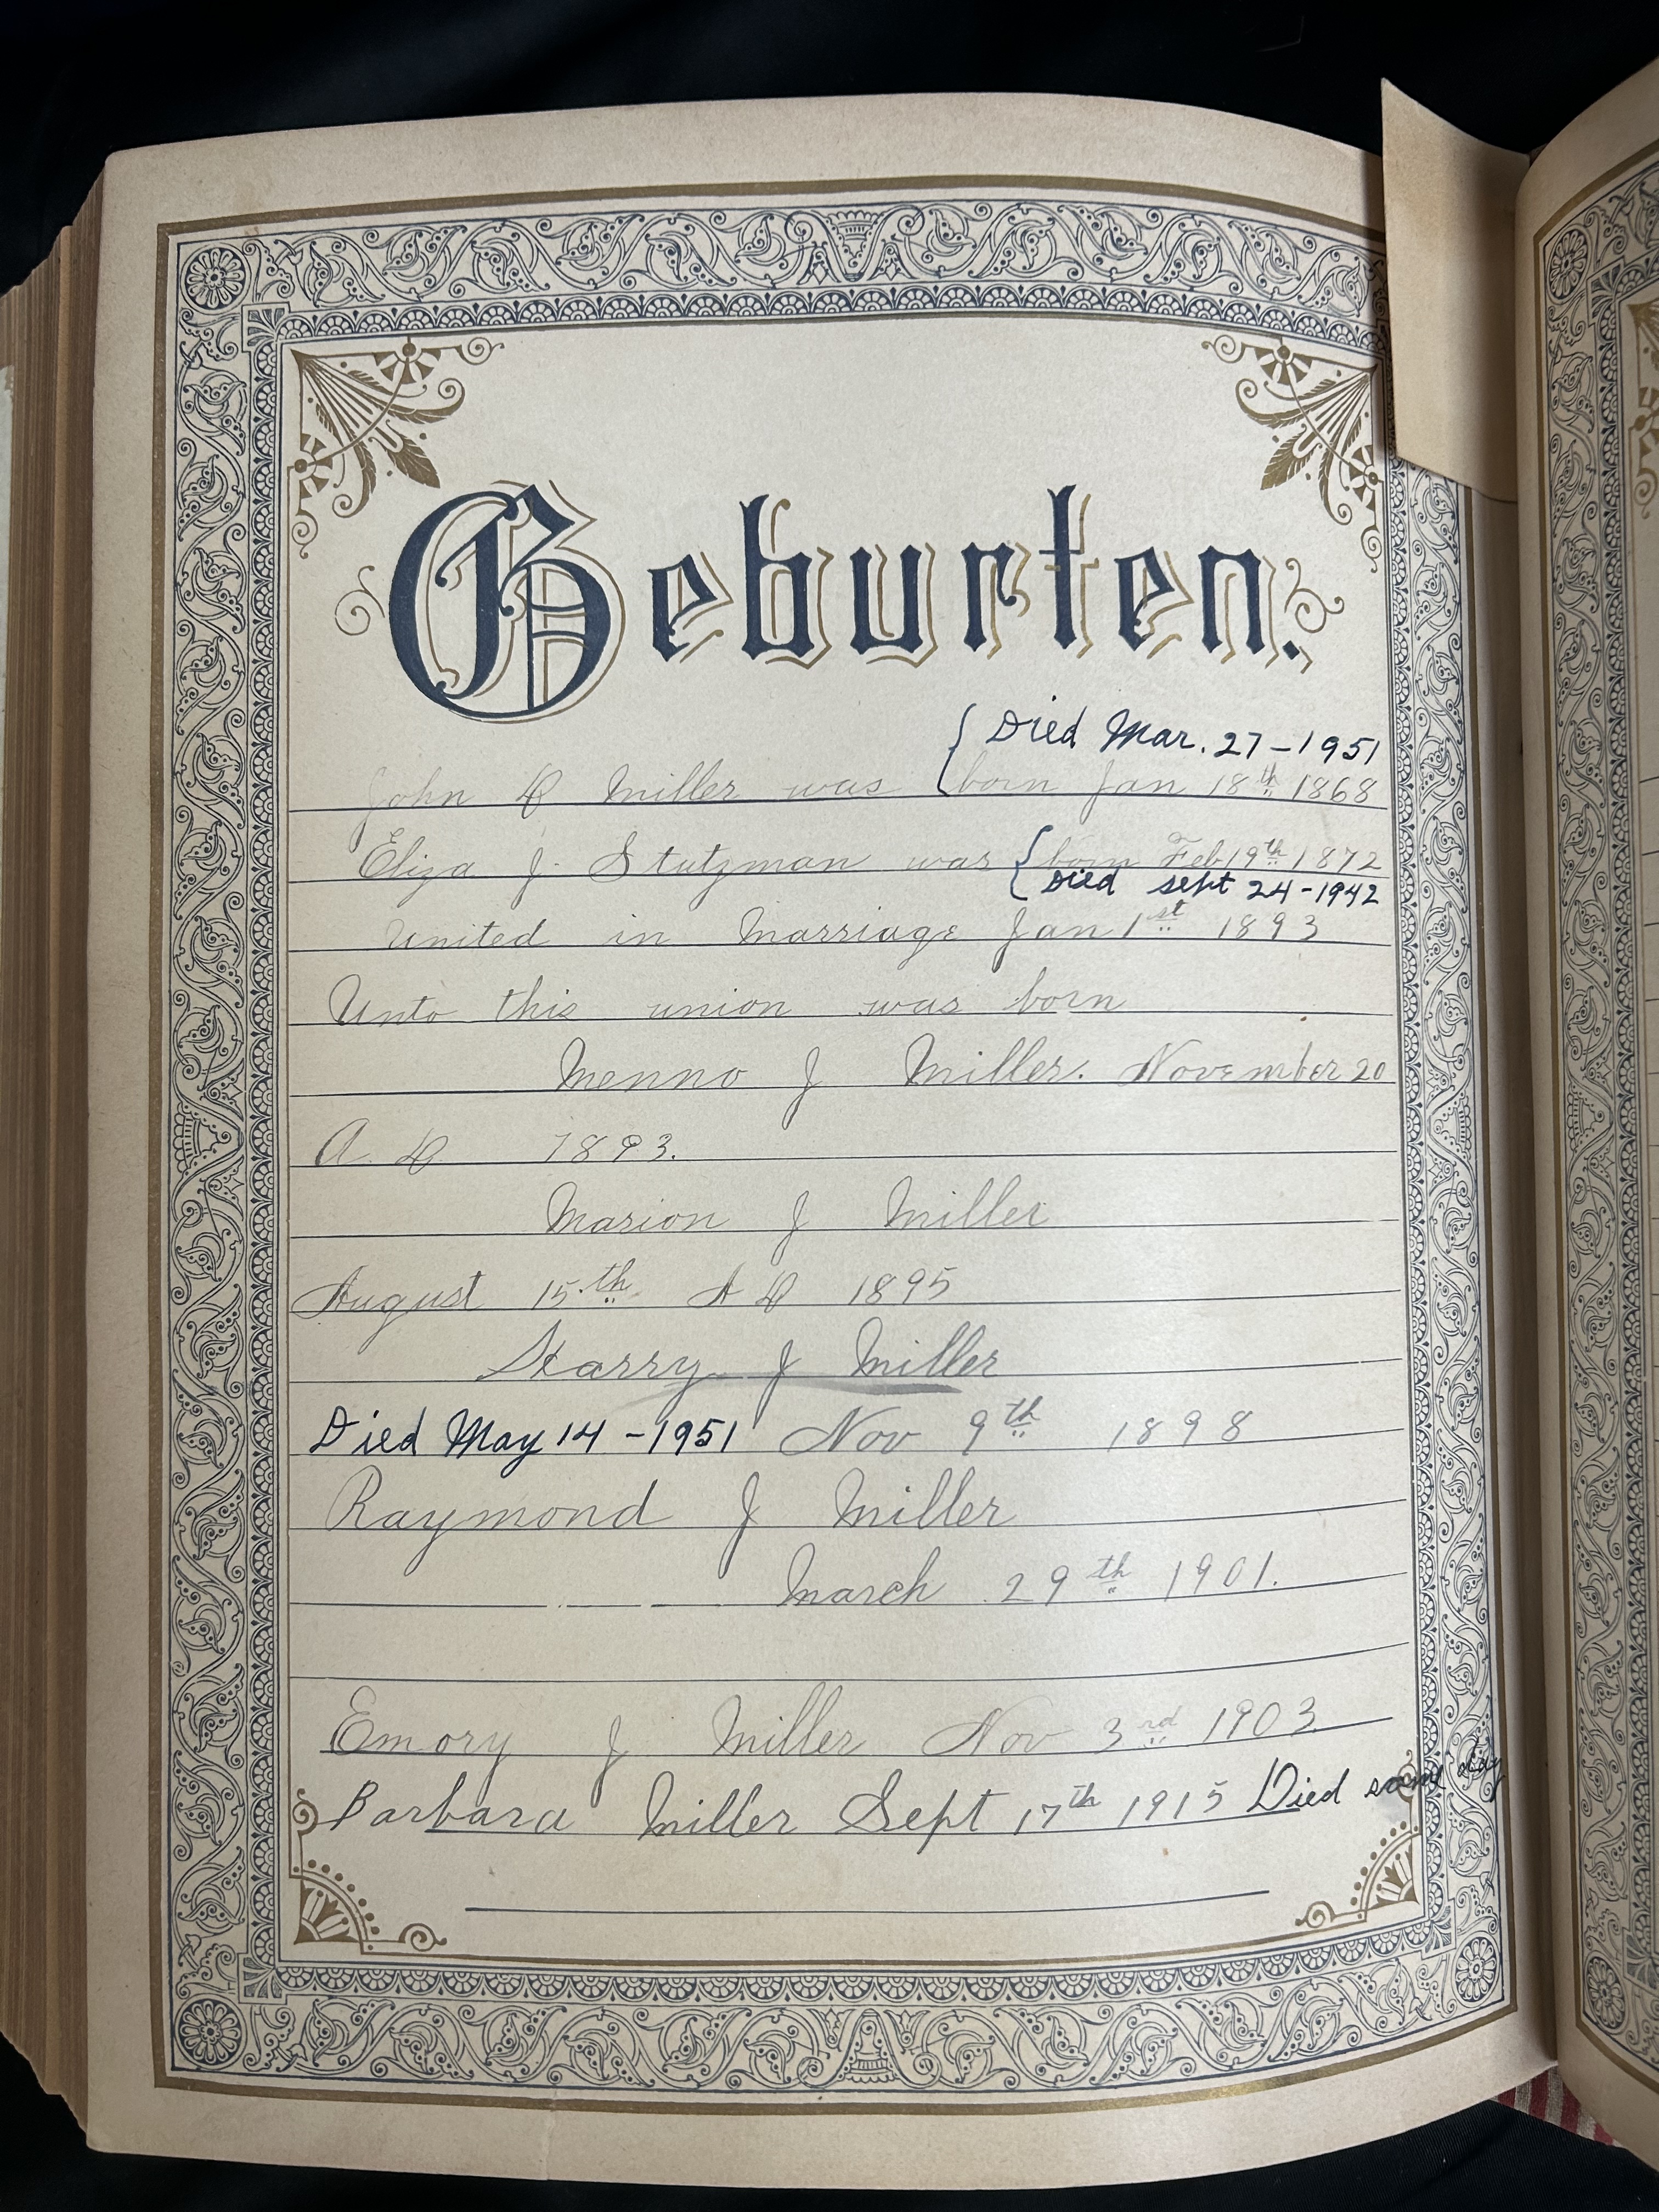 Geburten.
{ Died Mar. 27-1951
John D Miller was { born Jan 18th 1868
Eliza J. Stutzman was { born Feb 19th 1872
{ Died Sept 24-1942
United in Marriage Jan 1st 1893
Unto this union was born
Menno J Miller. November 20
A. D 1893.
Marion J Miller
August 15.th A D 1895
Harry J Miller
Died May 14-1951 Nov 9th 1898
Raymond J Miller
March 29th 1901.
Emory J Miller Nov 3rd 1903
Barbara Miller Sept 17th 1915 Died same day